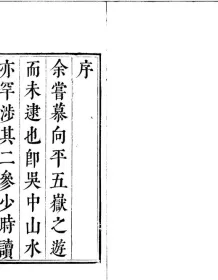 序
余嘗慕向平五嶽之遊
而未逮也卽吳中山水
亦罕涉其二參少時讀